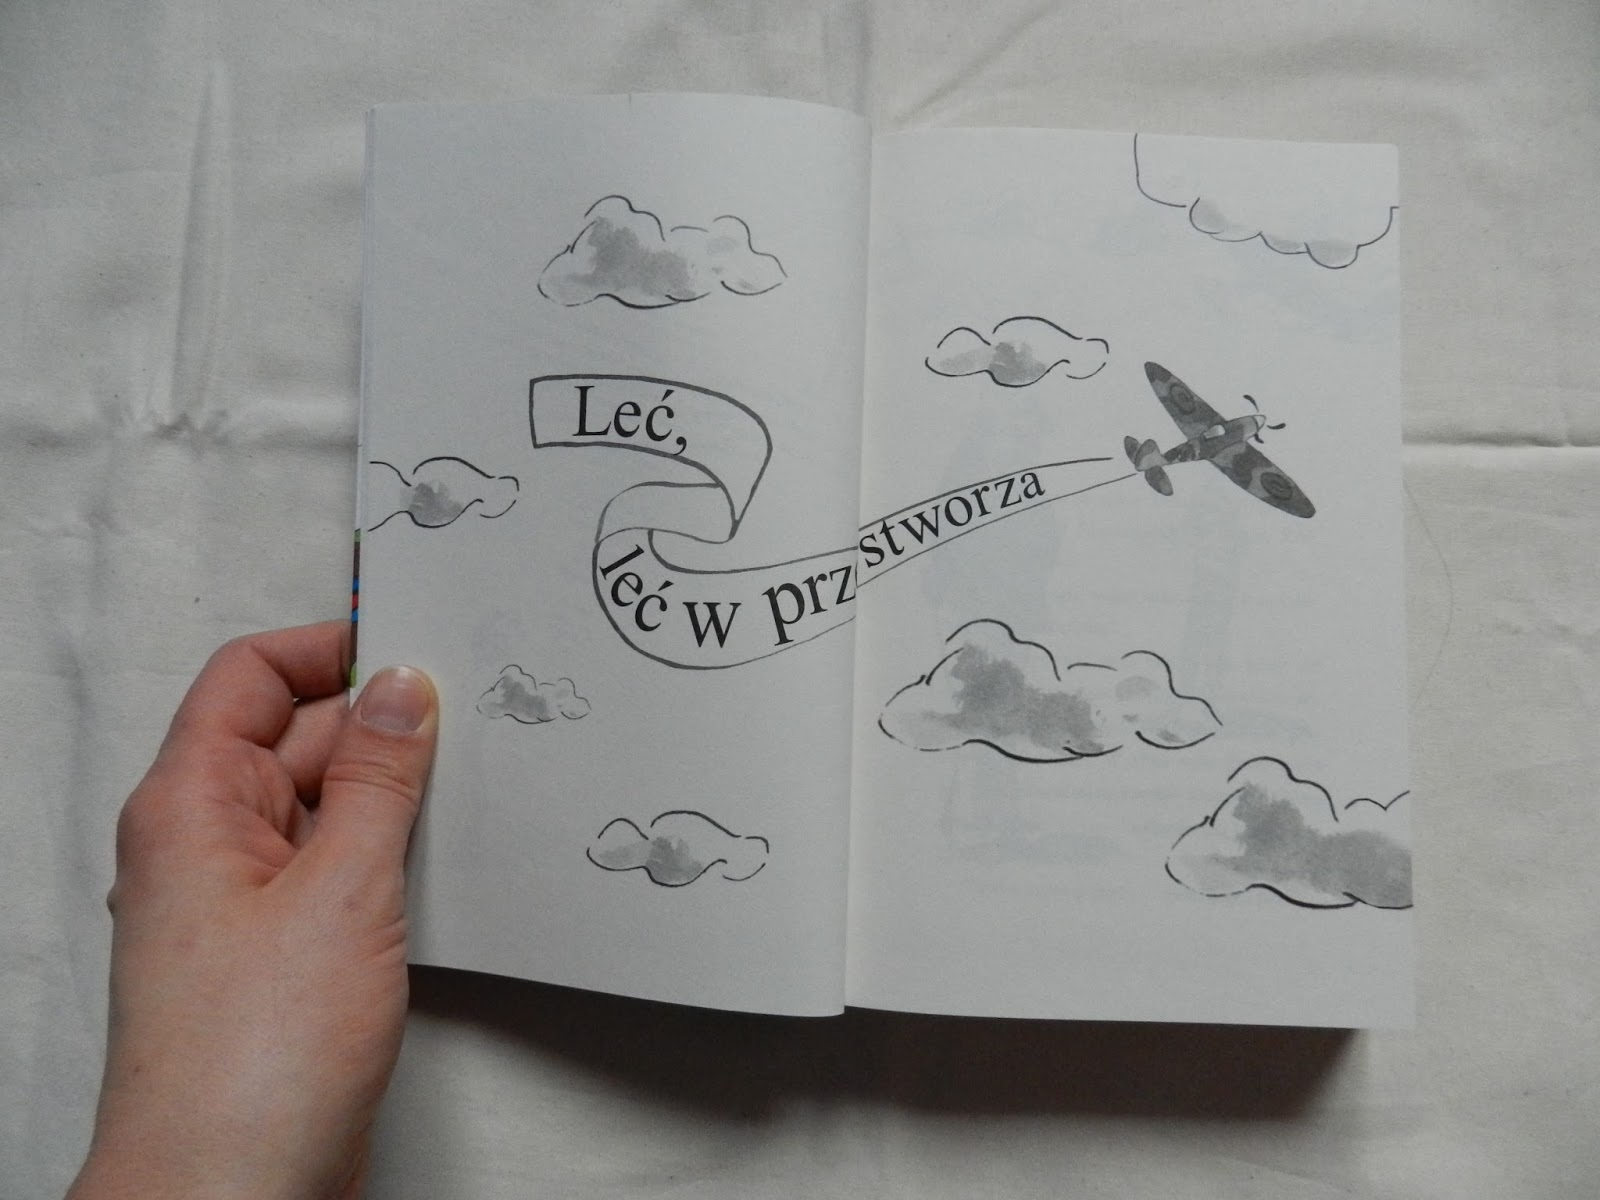 Leć,
leć w przestworza